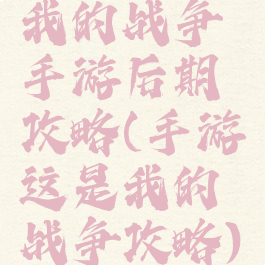 我的战争
手游后期
攻略(手游
这是我的
战争攻略)